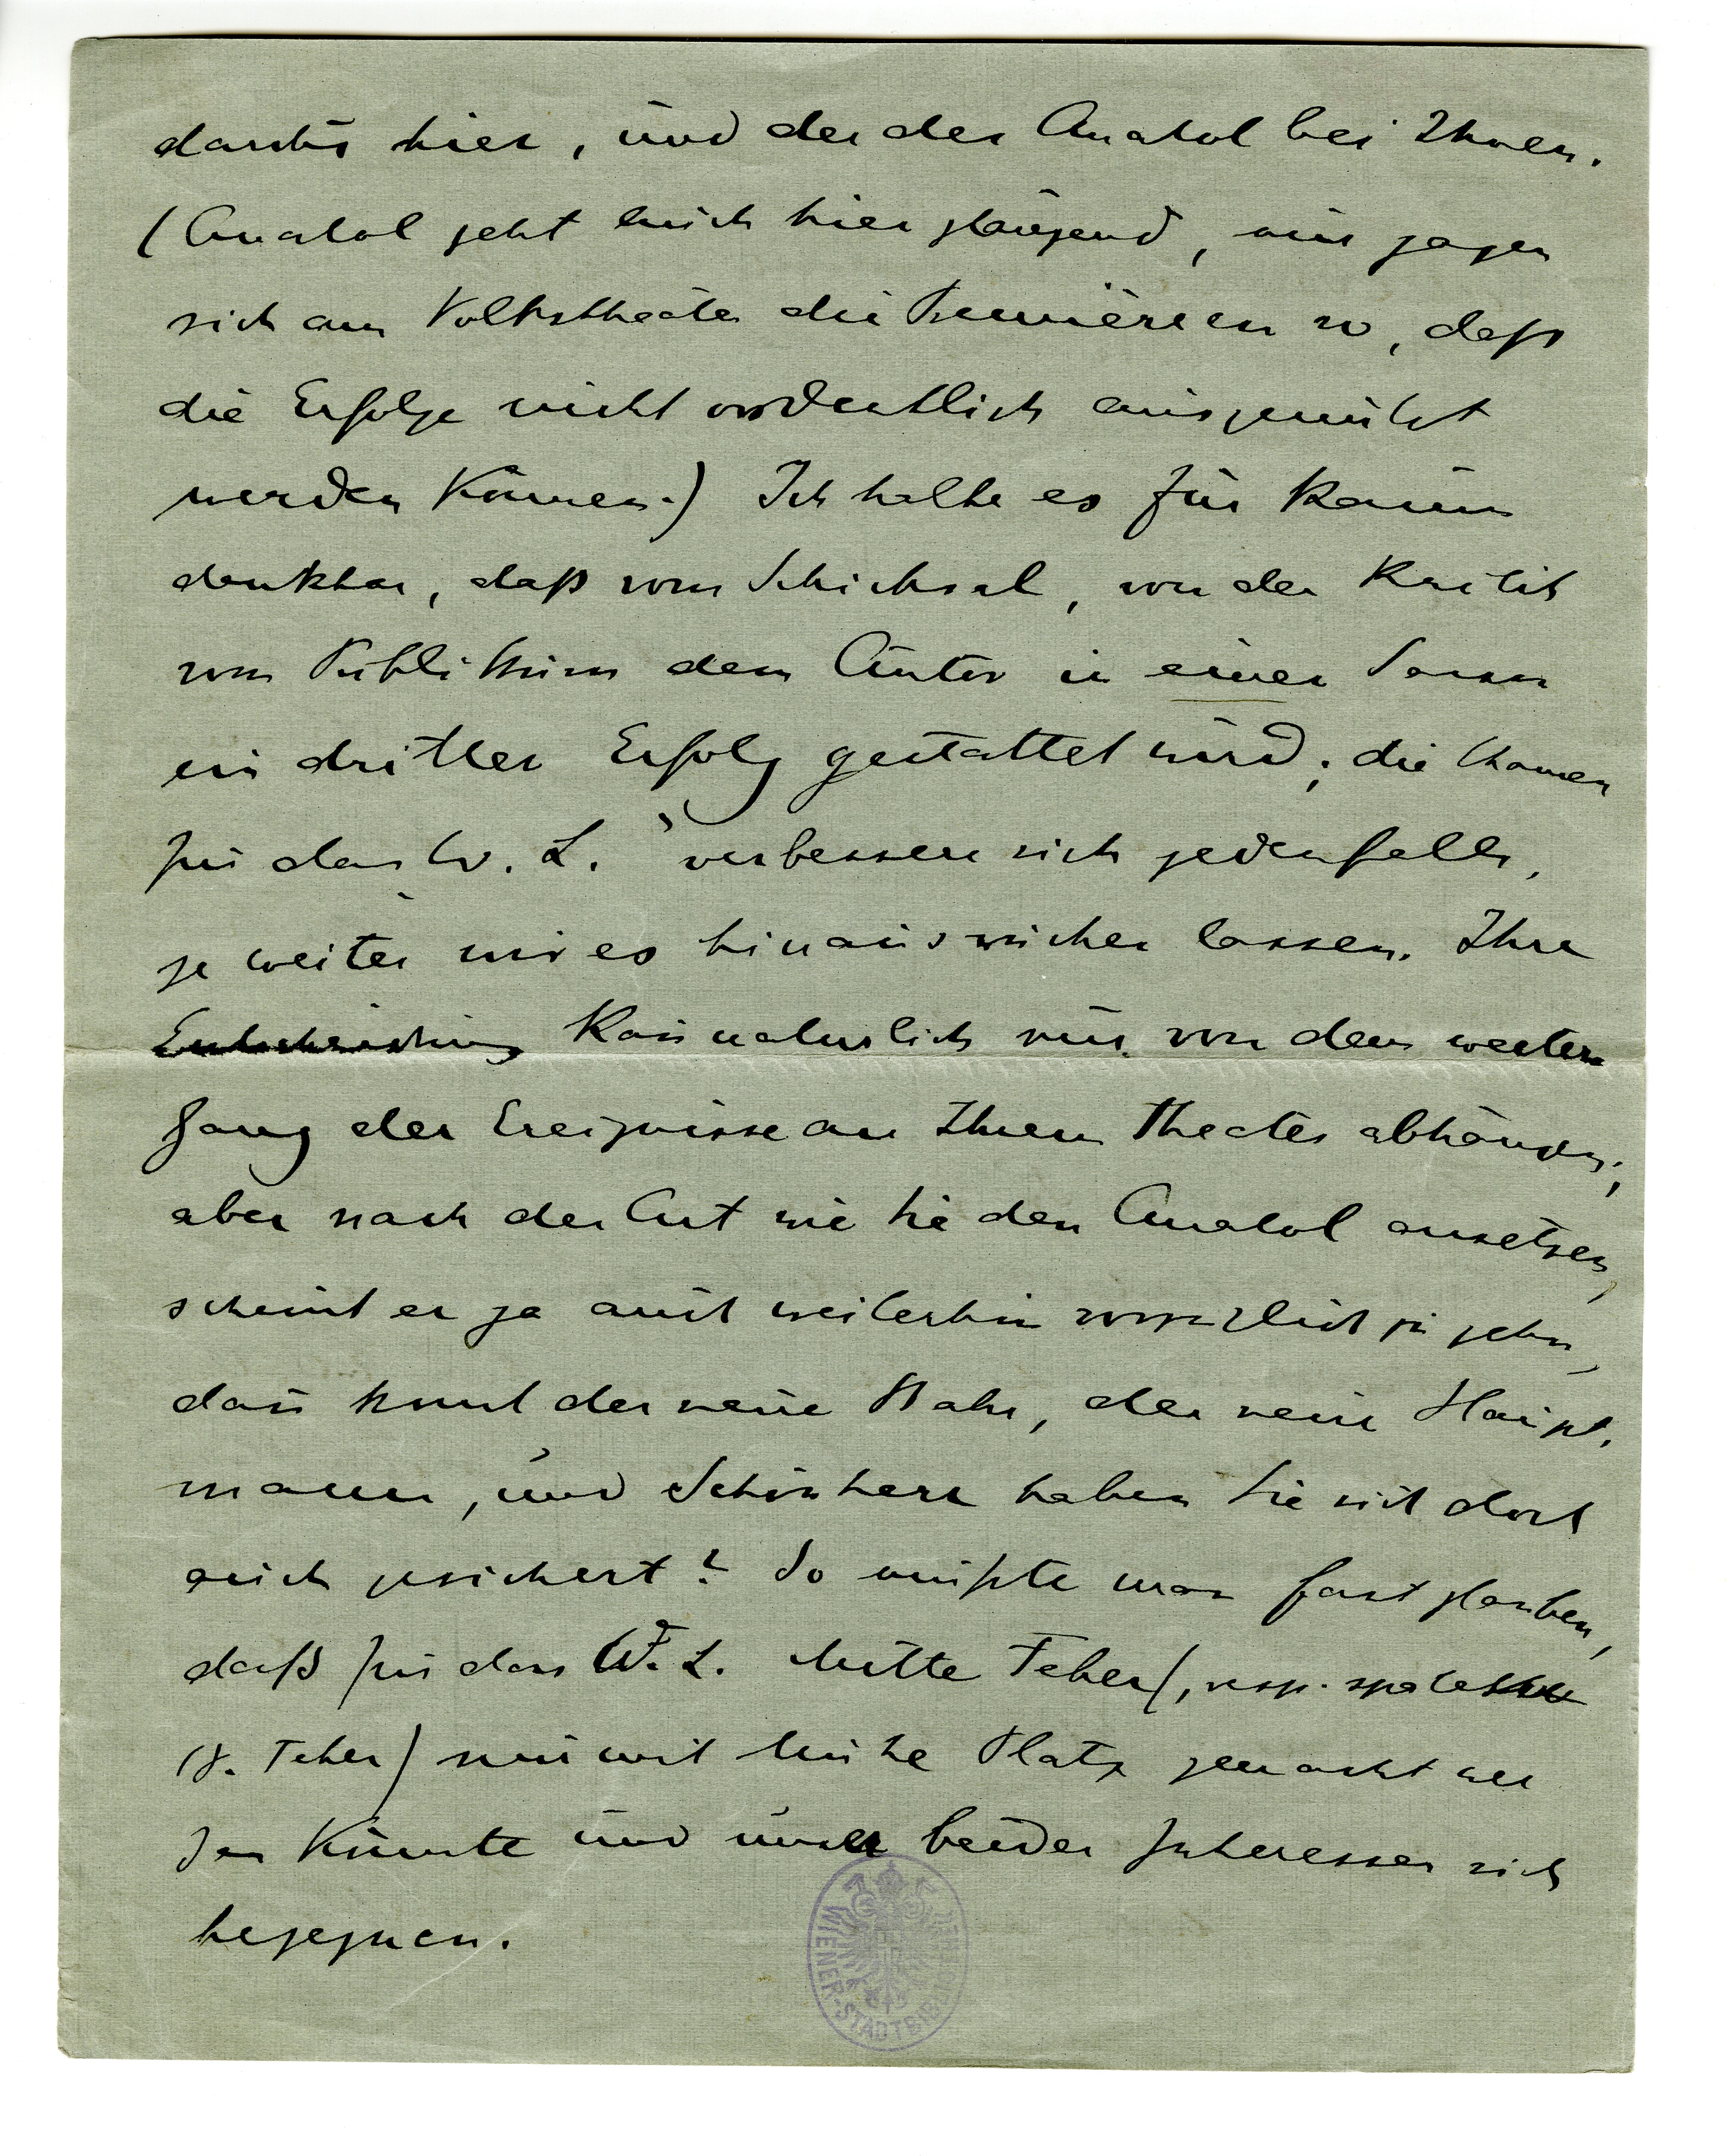 dardus hier, und der des Anatol bei Ihnen.
(Anatol geht auch hier glänzend, nur jagen
sich am Volkstheater die Premièren so, daß
die Erfolge nicht ordentlich ausgenützt
werden können.) Ich halte es für kaum
denkbar, daß vom Schicksal, von der Kritik
vom Publikum dem Autor in einer Saison
ein dritter Erfolg gestattet wird; die Chancen
für das W. L. verbessern sich jedenfalls,
je weiter wir es hinausrücken lassen. Ihre
Entscheidung kann natürlich nur von dem weitern
Gang der Ereignisse an Ihrem Theater abhängen;
aber nach der Art wie Sie den Anatol ansetzen,
scheint er ja auch weiterhin vorzüglich zu gehn,
dann kommt der neue Bahr, der neue Haupt-
mann, und Schönherr haben Sie sich doch
auch gesichert? So müßte man fast glauben,
daß für das W. L. Mitte Feber (, resp. spätestens
18. Feber) nur mit Mühe Platz gemacht wer
den könnte und unser beider Interessen sich
begegnen.
WIENER STADTBIBLIOTHEK